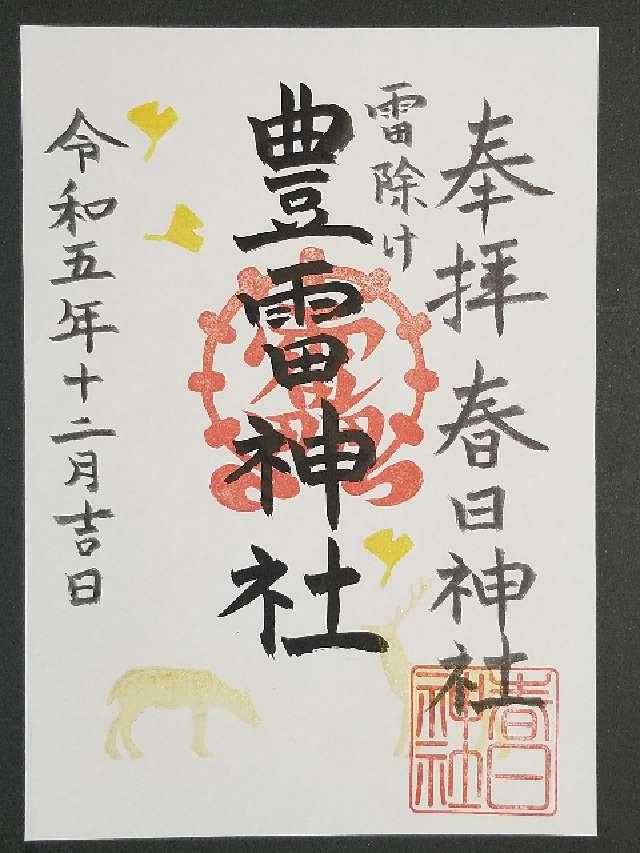 奉拝 春日神社
雷除け
豊雷神社
令和五年十二月吉日
春日
神社